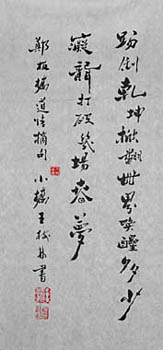 踢倒乾坤掀翻世界喚醒多少
癡聾打破幾場春夢
鄭板橋道情摘句 小橋王書